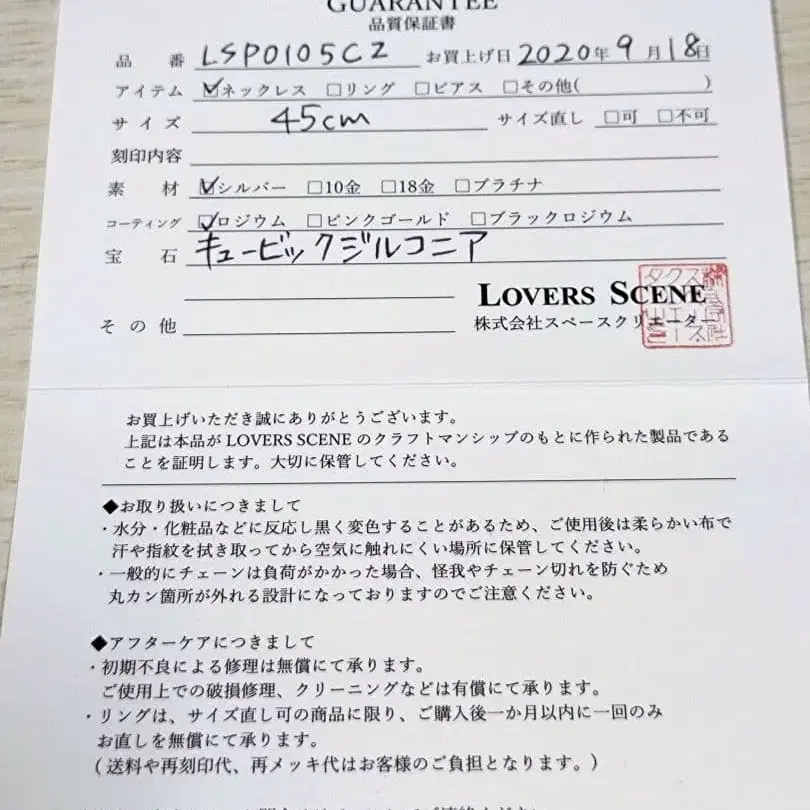 GUARANTEE
品質保証書
品番 LSP0105CZ お買上げ日 2020年 9月 18日
アイテム ☑ネックレス □リング □ピアス □その他( )
サイズ 45cm サイズ直し □可 □不可
刻印内容
素材 ☑シルバー □10金 □18金 □プラチナ
コーティング ☑ロジウム □ピンクゴールド □ブラックロジウム
宝石 キュービックジルコニア
LOVERS SCENE
その他 株式会社スペースクリエーター
お買上げいただき誠にありがとうございます。
上記は本品が LOVERS SCENE のクラフトマンシップのもとに作られた製品である
ことを証明します。大切に保管してください。
◆お取り扱いにつきまして
・水分・化粧品などに反応し黒く変色することがあるため、ご使用後は柔らかい布で
汗や指紋を拭き取ってから空気に触れにくい場所に保管してください。
・一般的にチェーンは負荷がかかった場合、怪我やチェーン切れを防ぐため
丸カン箇所が外れる設計になっておりますのでご注意ください。
◆アフターケアにつきまして
・初期不良による修理は無償にて承ります。
ご使用上での破損修理、クリーニングなどは有償にて承ります。
・リングは、サイズ直し可の商品に限り、ご購入後一か月以内に一回のみ
お直しを無償にて承ります。
(送料や再刻印代、再メッキ代はお客様のご負担となります。)